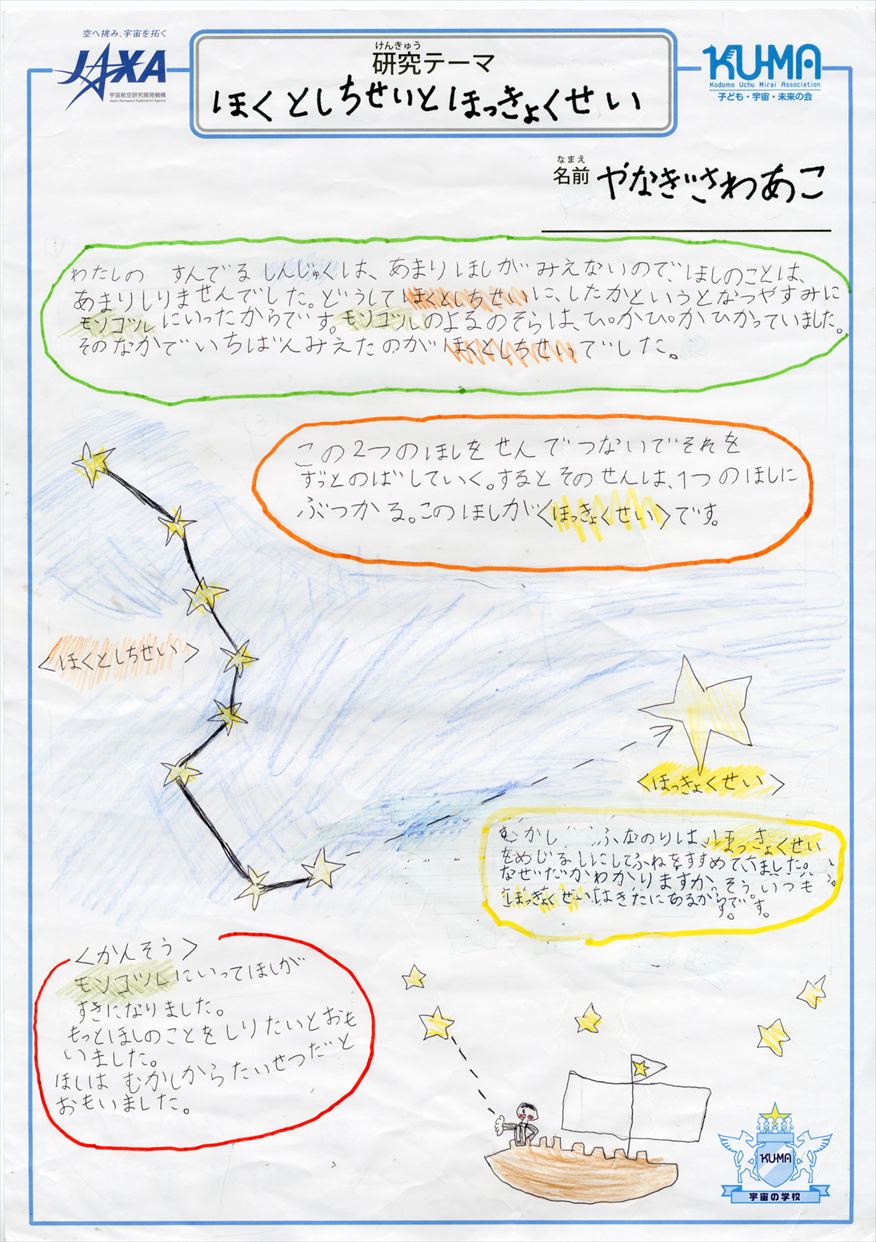 空へ挑み、宇宙を拓く
JAXA
宇宙航空研究開発機構
Japan Aerospace Exploration Agency
けんきゅう
研究テーマ
ほくとしちせいとほっきょくせい
KU-MA
Kodomo Uchu Mirai Association
子ども・宇宙・未来の会
なまえ
名前 やなぎさわあこ
わたしの すんでる しんじゅくは、あまりほしがみえないので、ほしのことは、
あまりしりませんでした。どうしてほくとしちせいに、したかというとなつやすみに
モンゴルにいったからです。モンゴルのよるのそらは、ぴかぴかひかっていました。
そのなかでいちばんみえたのがほくとしちせいでした。
この2つのほしをせんでつないでそれを
ずっとのばしていく。するとそのせんは、1つのほしに
ぶつかる。このほしが<ほっきょくせい>です。
<ほくとしちせい>
<ほっきょくせい>
むかし ふなのりは、ほっきょくせい
をめじるしにしてふねをすすめていました。
なぜだかわかりますか。そう。いつも
ほっきょくせいはきたにあるからです。
<かんそう>
モンゴルにいってほしが
すきになりました。
もっとほしのことをしりたいとおも
いました。
ほしは むかしからたいせつだと
おもいました。
KU-MA
宇宙の学校